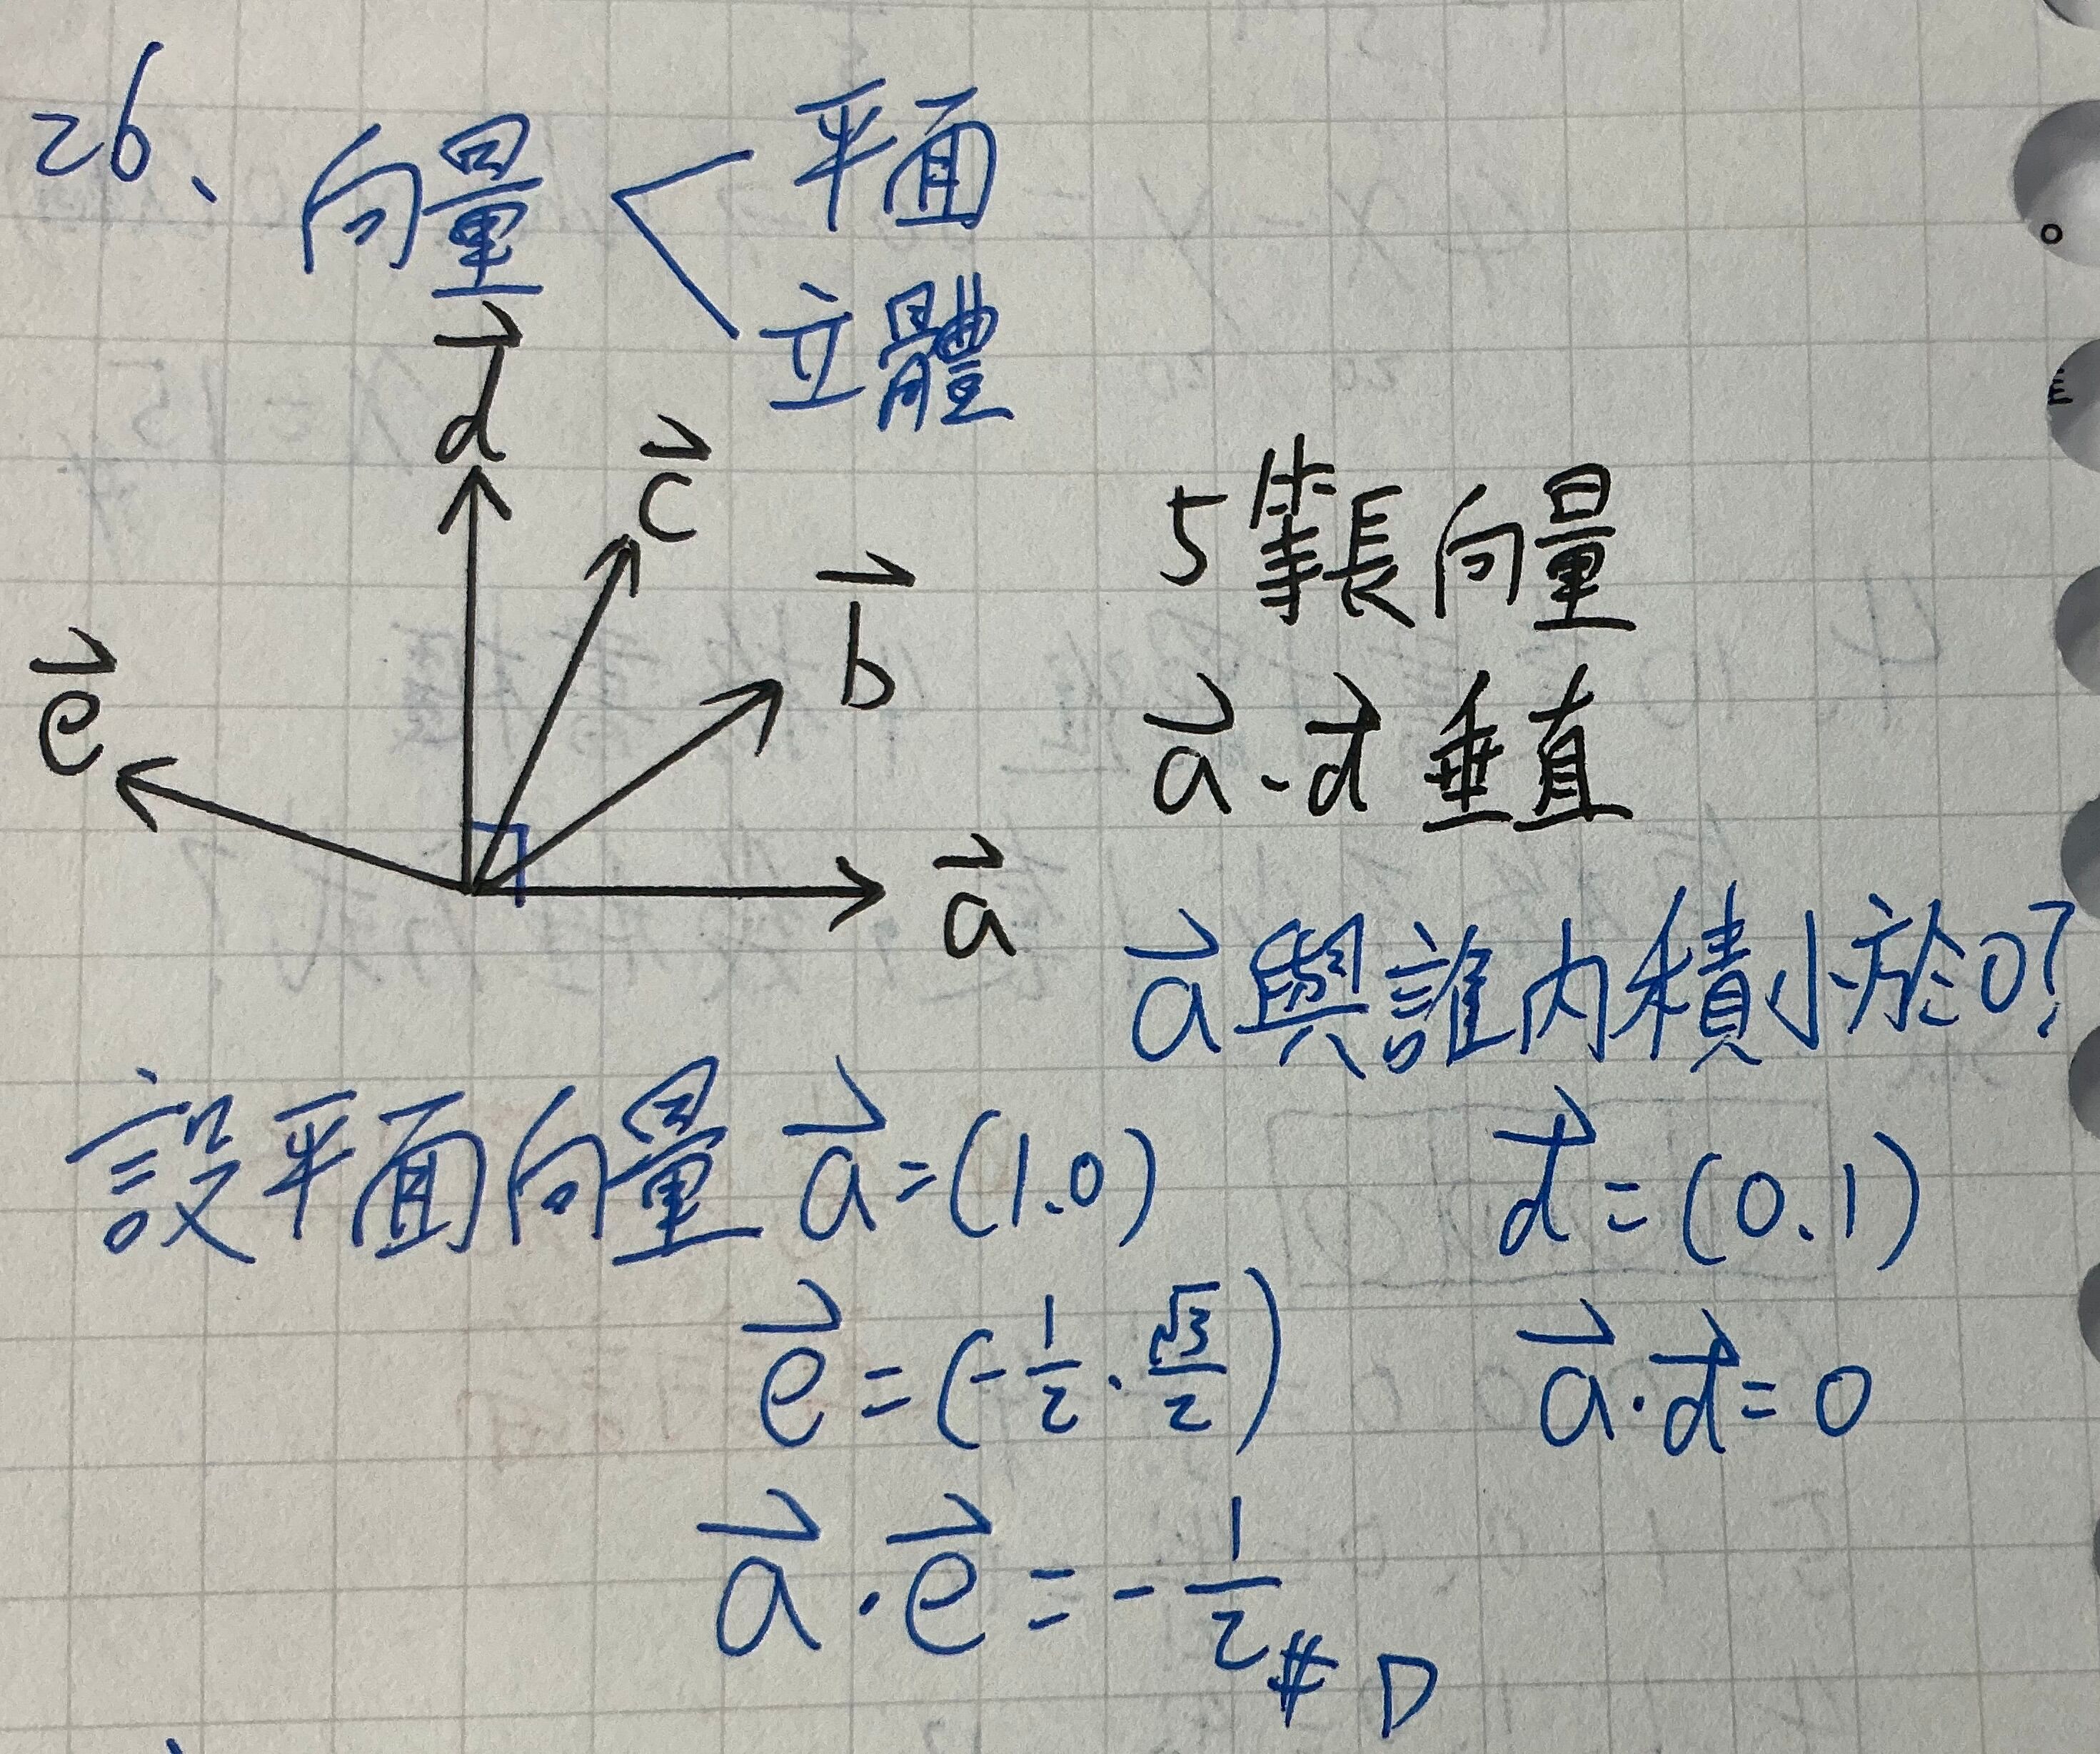 26、向量
平面
立體
d
c
b
e
a
5等長向量
a、d 垂直
a與誰內積小於0?
設平面向量 a=(1.0)
d=(0.1)
e=(-1/2.√3/2)
a·d=0
a·e=-1/2 # D